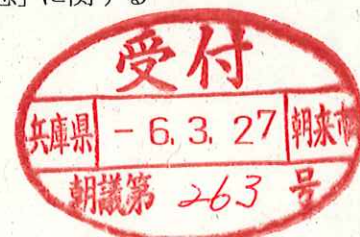 」に関する
受付
兵庫県 -6.3.27 朝来市
朝議第 263 号